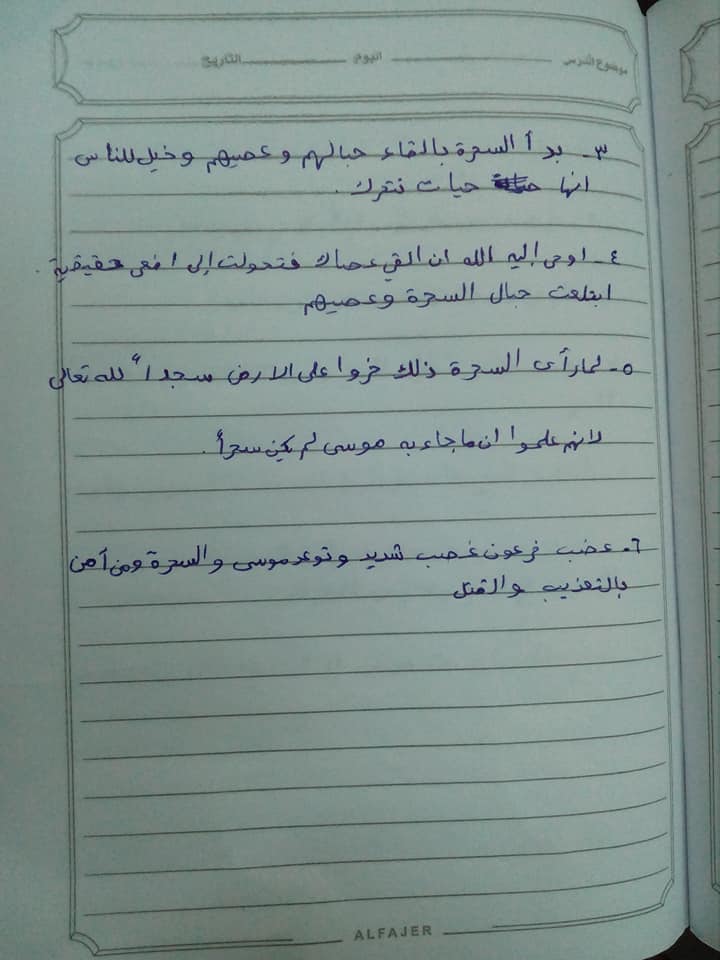 موضوع الدرس اليوم التاريخ
٣- بدأ السحرة بالقاء حبالهم وعصيهم وخيل للناس
انها حيات تتحرك .
٤- اوحى إليه الله ان القي عصاك فتحولت إلى افعى حقيقية .
ابتلعت حبال السحرة وعصيهم
٥- لما رأى السحرة ذلك خروا على الارض سجداً لله تعالى
لانهم علموا ان ما جاء به موسى لم يكن سحراً .
٦- غضب فرعون غضب شديد وتوعد موسى والسحرة ومن آمن
بالتعذيب والقتل
ALFAJER